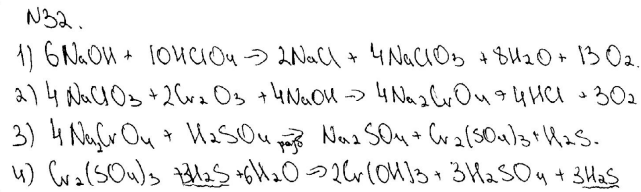 N32.
1) 6NaOH + 10HClO4 → 2NaCl + 4NaClO3 + 8H2O + 13O2.
2) 4NaClO3 + 2Cr2O3 + 4NaOH → 4Na2CrO4 + 4HCl + 3O2
3) 4Na2CrO4 + H2SO4 разб → Na2SO4 + Cr2(SO4)3 + H2S.
4) Cr2(SO4)3 + 3H2S + 6H2O → 2Cr(OH)3 + 3H2SO4 + 3H2S